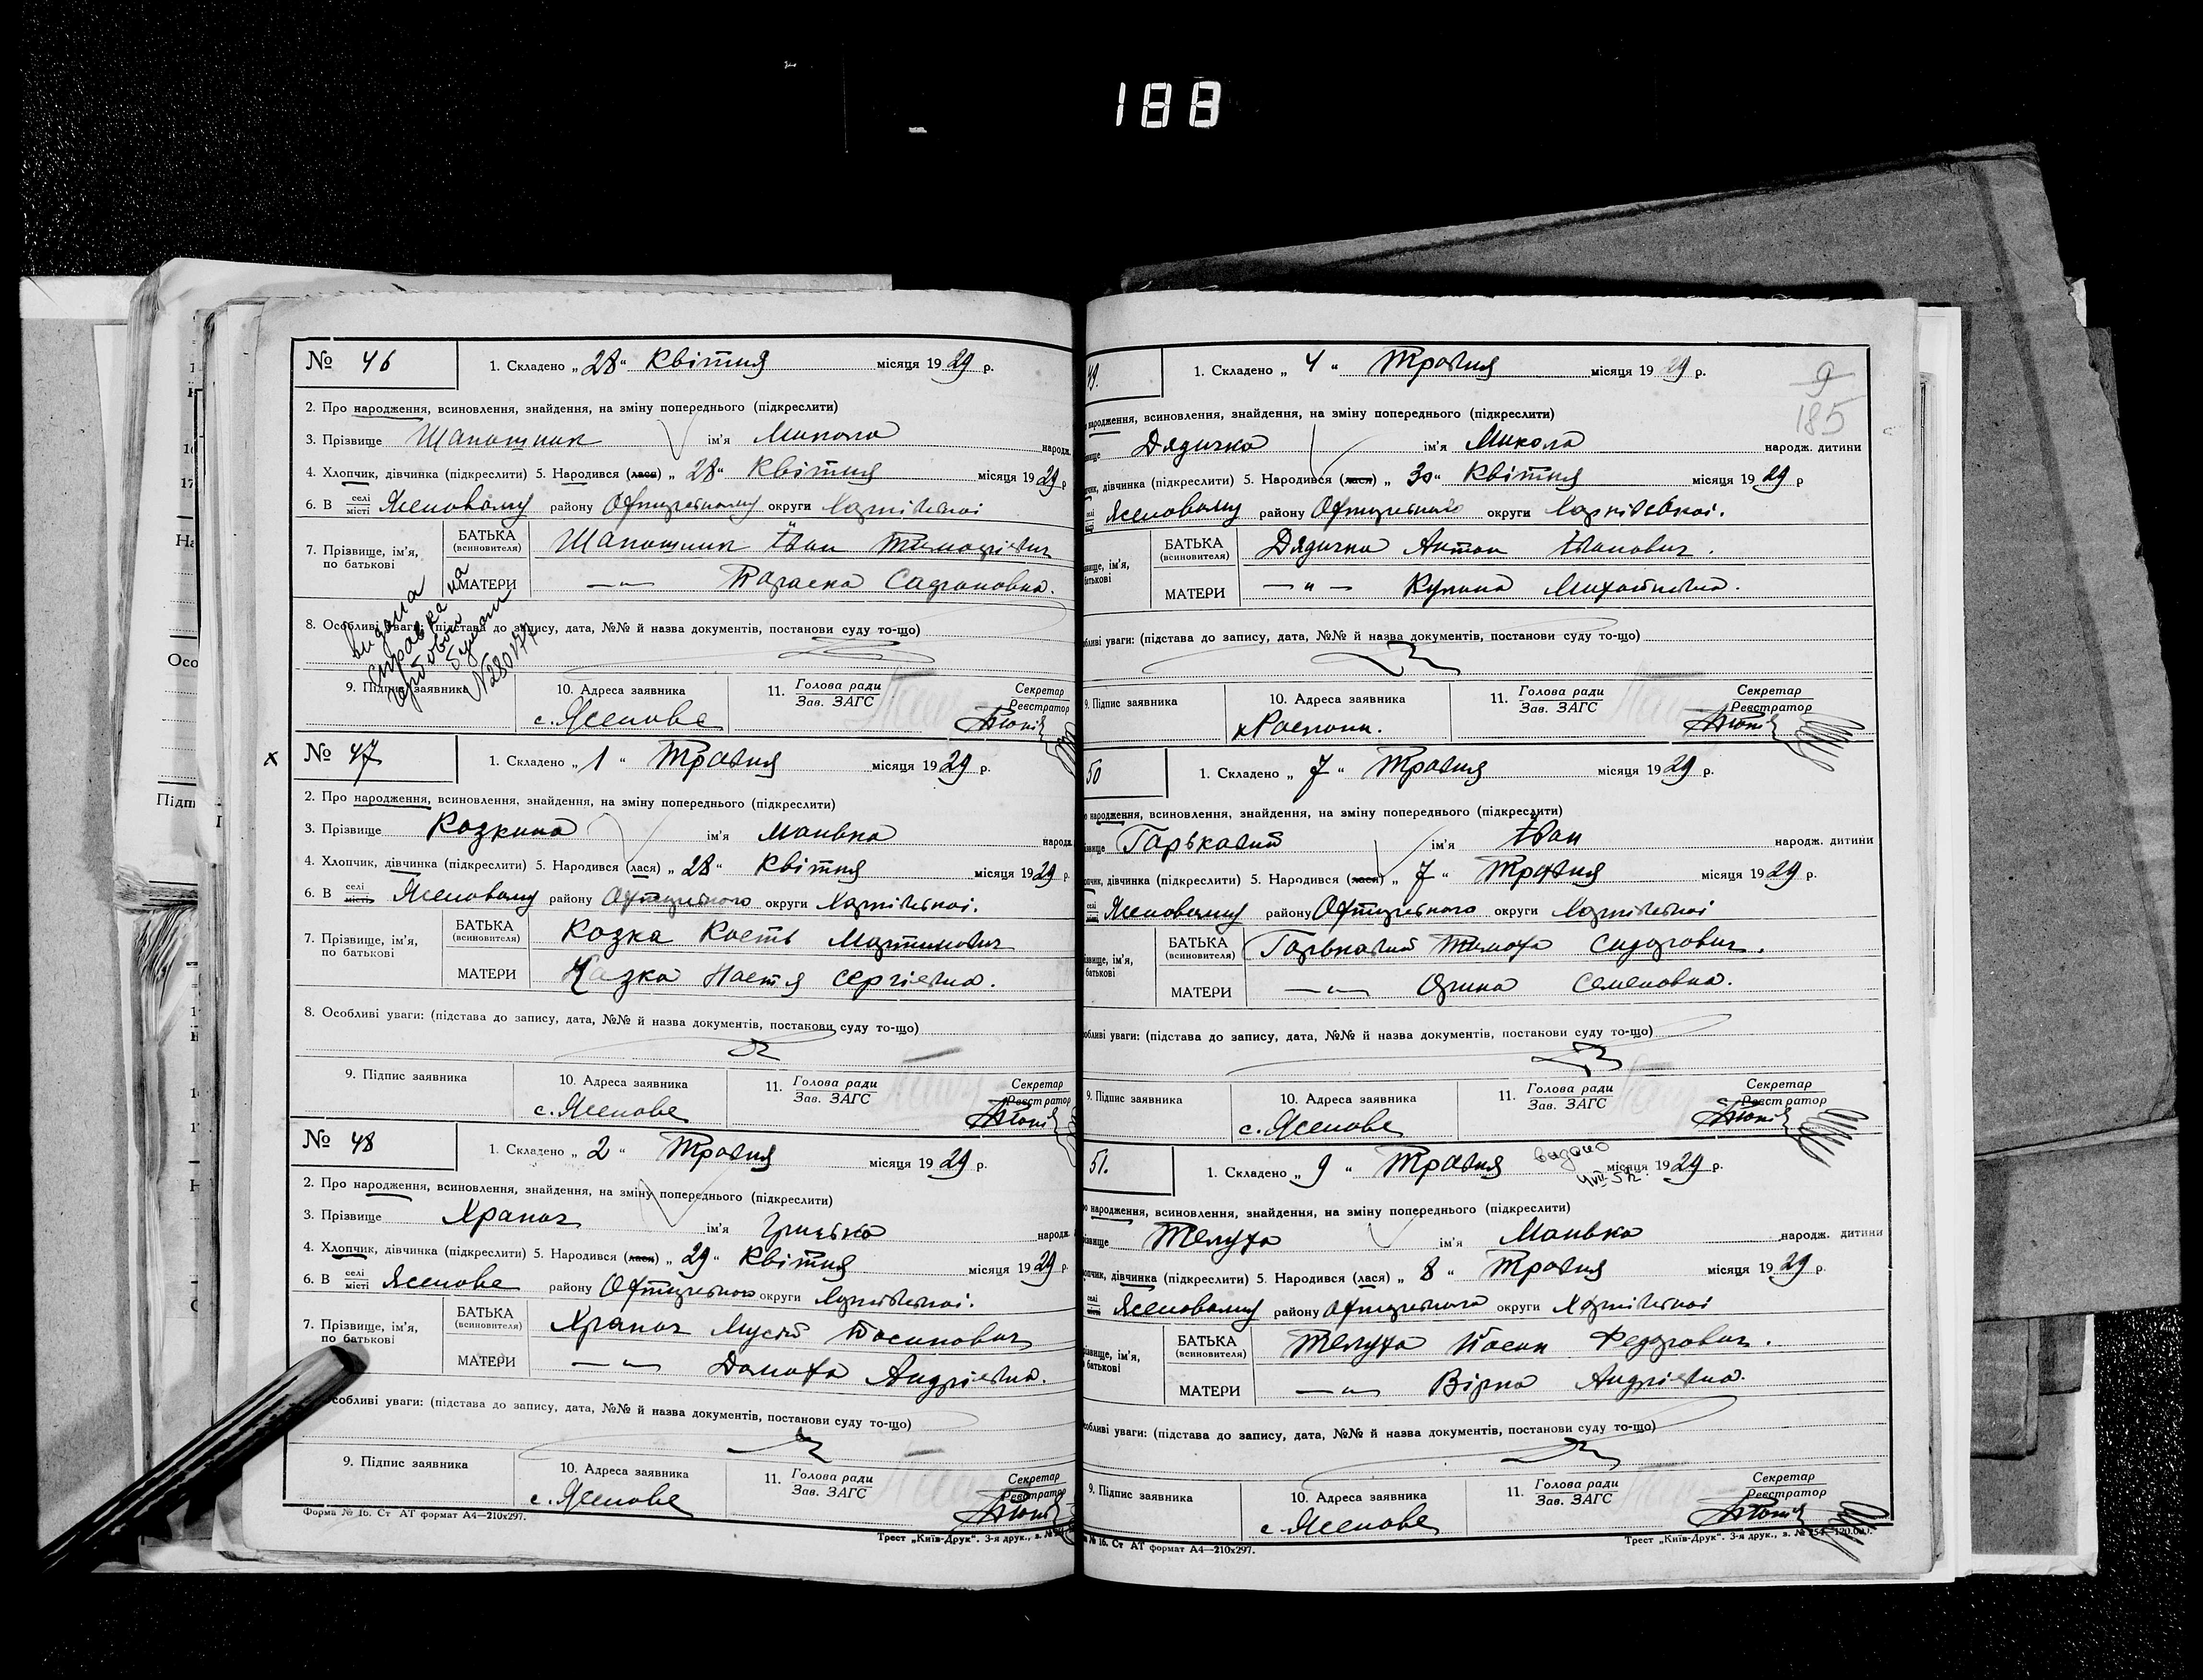 188
№ 46
1. Складено „ 28 “ Квітня місяця 19 29 р.
2. Про народження, всиновлення, знайдення, на зміну попереднього (підкреслити)
3. Прізвище Шапошник ім'я Микола народж.
4. Хлопчик, дівчинка (підкреслити) 5. Народився (лася) „ 28 “ Квітня місяця 19 29 р
6. В селі місті Ясеновому району Охтирському округи Харківської
7. Прізвище, ім'я, по батькові
БАТЬКА (всиновителя) Шапошник Іван Тимофієвич
МАТЕРИ —„— Параска Сафоновна.
8. Особливі уваги: (підстава до запису, дата, №№ й назва документів, постанови суду то-що)
Видана справка на гербовой бумаги №
9. Підпис заявника
10. Адреса заявника
с. Ясенове
11. Голова ради
Зав. ЗАГС
Секретар
Реєстратор
№ 47
1. Складено „ 1 “ Травня місяця 19 29 р.
2. Про народження, всиновлення, знайдення, на зміну попереднього (підкреслити)
3. Прізвище Козкина ім'я Манька народж.
4. Хлопчик, дівчинка (підкреслити) 5. Народився (лася) „ 28 “ Квітня місяця 19 29 р.
6. В селі місті Ясеновому району Охтирського округи Харківської.
7. Прізвище, ім'я, по батькові
БАТЬКА (всиновителя) Козка Кость Мартинович
МАТЕРИ Козка Настя Сергієвна.
8. Особливі уваги: (підстава до запису, дата, №№ й назва документів, постакови суду то-що)
9. Підпис заявника
10. Адреса заявника
с. Ясенове
11. Голова ради
Зав. ЗАГС
Секретар
Реєстратор
№ 48
1. Складено „ 2 “ Травня місяця 19 29 р.
2. Про народження, всиновлення, знайдення, на зміну попереднього (підкреслити)
3. Прізвище Храпач ім'я Гринько народж.
4. Хлопчик, дівчинка (підкреслити) 5. Народився (лася) „ 29 “ Квітня місяця 19 29 р.
6. В селі місті Ясенове району Охтирського округи Харківської.
7. Прізвище, ім'я, по батькові
БАТЬКА (всиновителя) Храпач Мусій Йосипович
МАТЕРИ —„— Домаха Андрієвна.
собливі уваги: (підстава до запису, дата, №№ й назва документів, постанови суду то-що)
9. Підпис заявника
10. Адреса заявника
с. Ясенове
11. Голова ради
Зав. ЗАГС
Секретар
Реєстратор
Форма № 16. Ст АТ формат А4—210х297.
Трест „Київ-Друк“. 3-я друк., з. №
49.
1. Складено „ 4 “ Травня місяця 19 29 р.
9
185
народження, всиновлення, знайдення, на зміну попереднього (підкреслити)
Дядичко ім'я Микола народж. дитини
дівчинка (підкреслити) 5. Народився (лася) „ 30 “ Квітня місяця 19 29 р
Ясеновому району Охтирського округи Харківської.
БАТЬКА (всиновителя) Дядичко Антон Іванович.
МАТЕРИ — „ — Кулина Михайлівна.
обливі уваги: (підстава до запису, дата, №№ й назва документів, постанови суду то-що)
9. Підпис заявника
10. Адреса заявника
11. Голова ради
Зав. ЗАГС
Секретар
Реєстратор
50
1. Складено „ 7 “ Травня місяця 19 29 р.
народження, всиновлення, знайдення, на зміну попереднього (підкреслити)
Горьковий ім'я Іван народж. дитини
дівчинка (підкреслити) 5. Народився (лася) „ 7 “ Травня місяця 19 29 р.
Ясеновому району Охтирського округи Харківської
БАТЬКА (всиновителя) Горьковий Тимоха Сидорович.
МАТЕРИ —„— Орина Семеновна.
обливі уваги: (підстава до запису, дата, №№ й назва документів, постакови суду то-що)
9. Підпис заявника
10. Адреса заявника
с. Ясенове
11. Голова ради
Зав. ЗАГС
Секретар
Реєстратор
51.
1. Складено „ 9 “ Травня місяця 19 29 р.
видано
народження, всиновлення, знайдення, на зміну попереднього (підкреслити)
Телуха ім'я Манька народж. дитини
дівчинка (підкреслити) 5. Народився (лася) „ 8 “ Травня місяця 19 29 р.
Ясеновому району Охтирського округи Харківської
БАТЬКА (всиновителя) Телуха Йосип Федорович.
МАТЕРИ —„— Вірка Андрієвна.
собливі уваги: (підстава до запису, дата, №№ й назва документів, постанови суду то-що)
9. Підпис заявника
10. Адреса заявника
с. Ясенове
11. Голова ради
Зав. ЗАГС
Секретар
Реєстратор
№ 16. Ст АТ формат А4—210х297.
Трест „Київ-Друк“. 3-я друк., з. № 254—120.000.